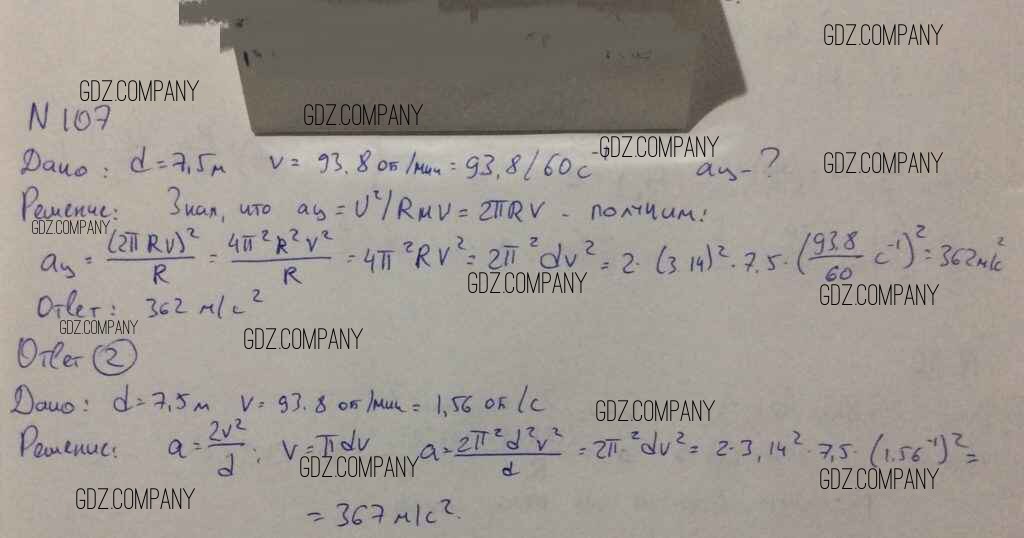 GDZ.COMPANY
GDZ.COMPANY
GDZ.COMPANY
N 107
GDZ.COMPANY
GDZ.COMPANY
Дано: d = 7,5 м ν = 93.8 об/мин = 93,8/60 с⁻¹ aц - ?
Решение: Зная, что aц = υ²/R и V = 2πRν - получим:
GDZ.COMPANY
aц = (2πRν)²/R = 4π²R²ν²/R = 4π²Rν² = 2π²dν² = 2·(3.14)²·7.5·(93.8/60 с⁻¹)² = 362 м/с²
GDZ.COMPANY
GDZ.COMPANY
Ответ: 362 м/с²
GDZ.COMPANY
GDZ.COMPANY
Ответ 2
Дано: d = 7,5 м ν = 93.8 об/мин = 1,56 об/с
GDZ.COMPANY
Решение: a = 2v²/d; v = πdν a = 2π²d²ν²/d = 2π²dν² = 2·3,14²·7,5·(1.56⁻¹)² =
GDZ.COMPANY
GDZ.COMPANY
GDZ.COMPANY
= 367 м/с².